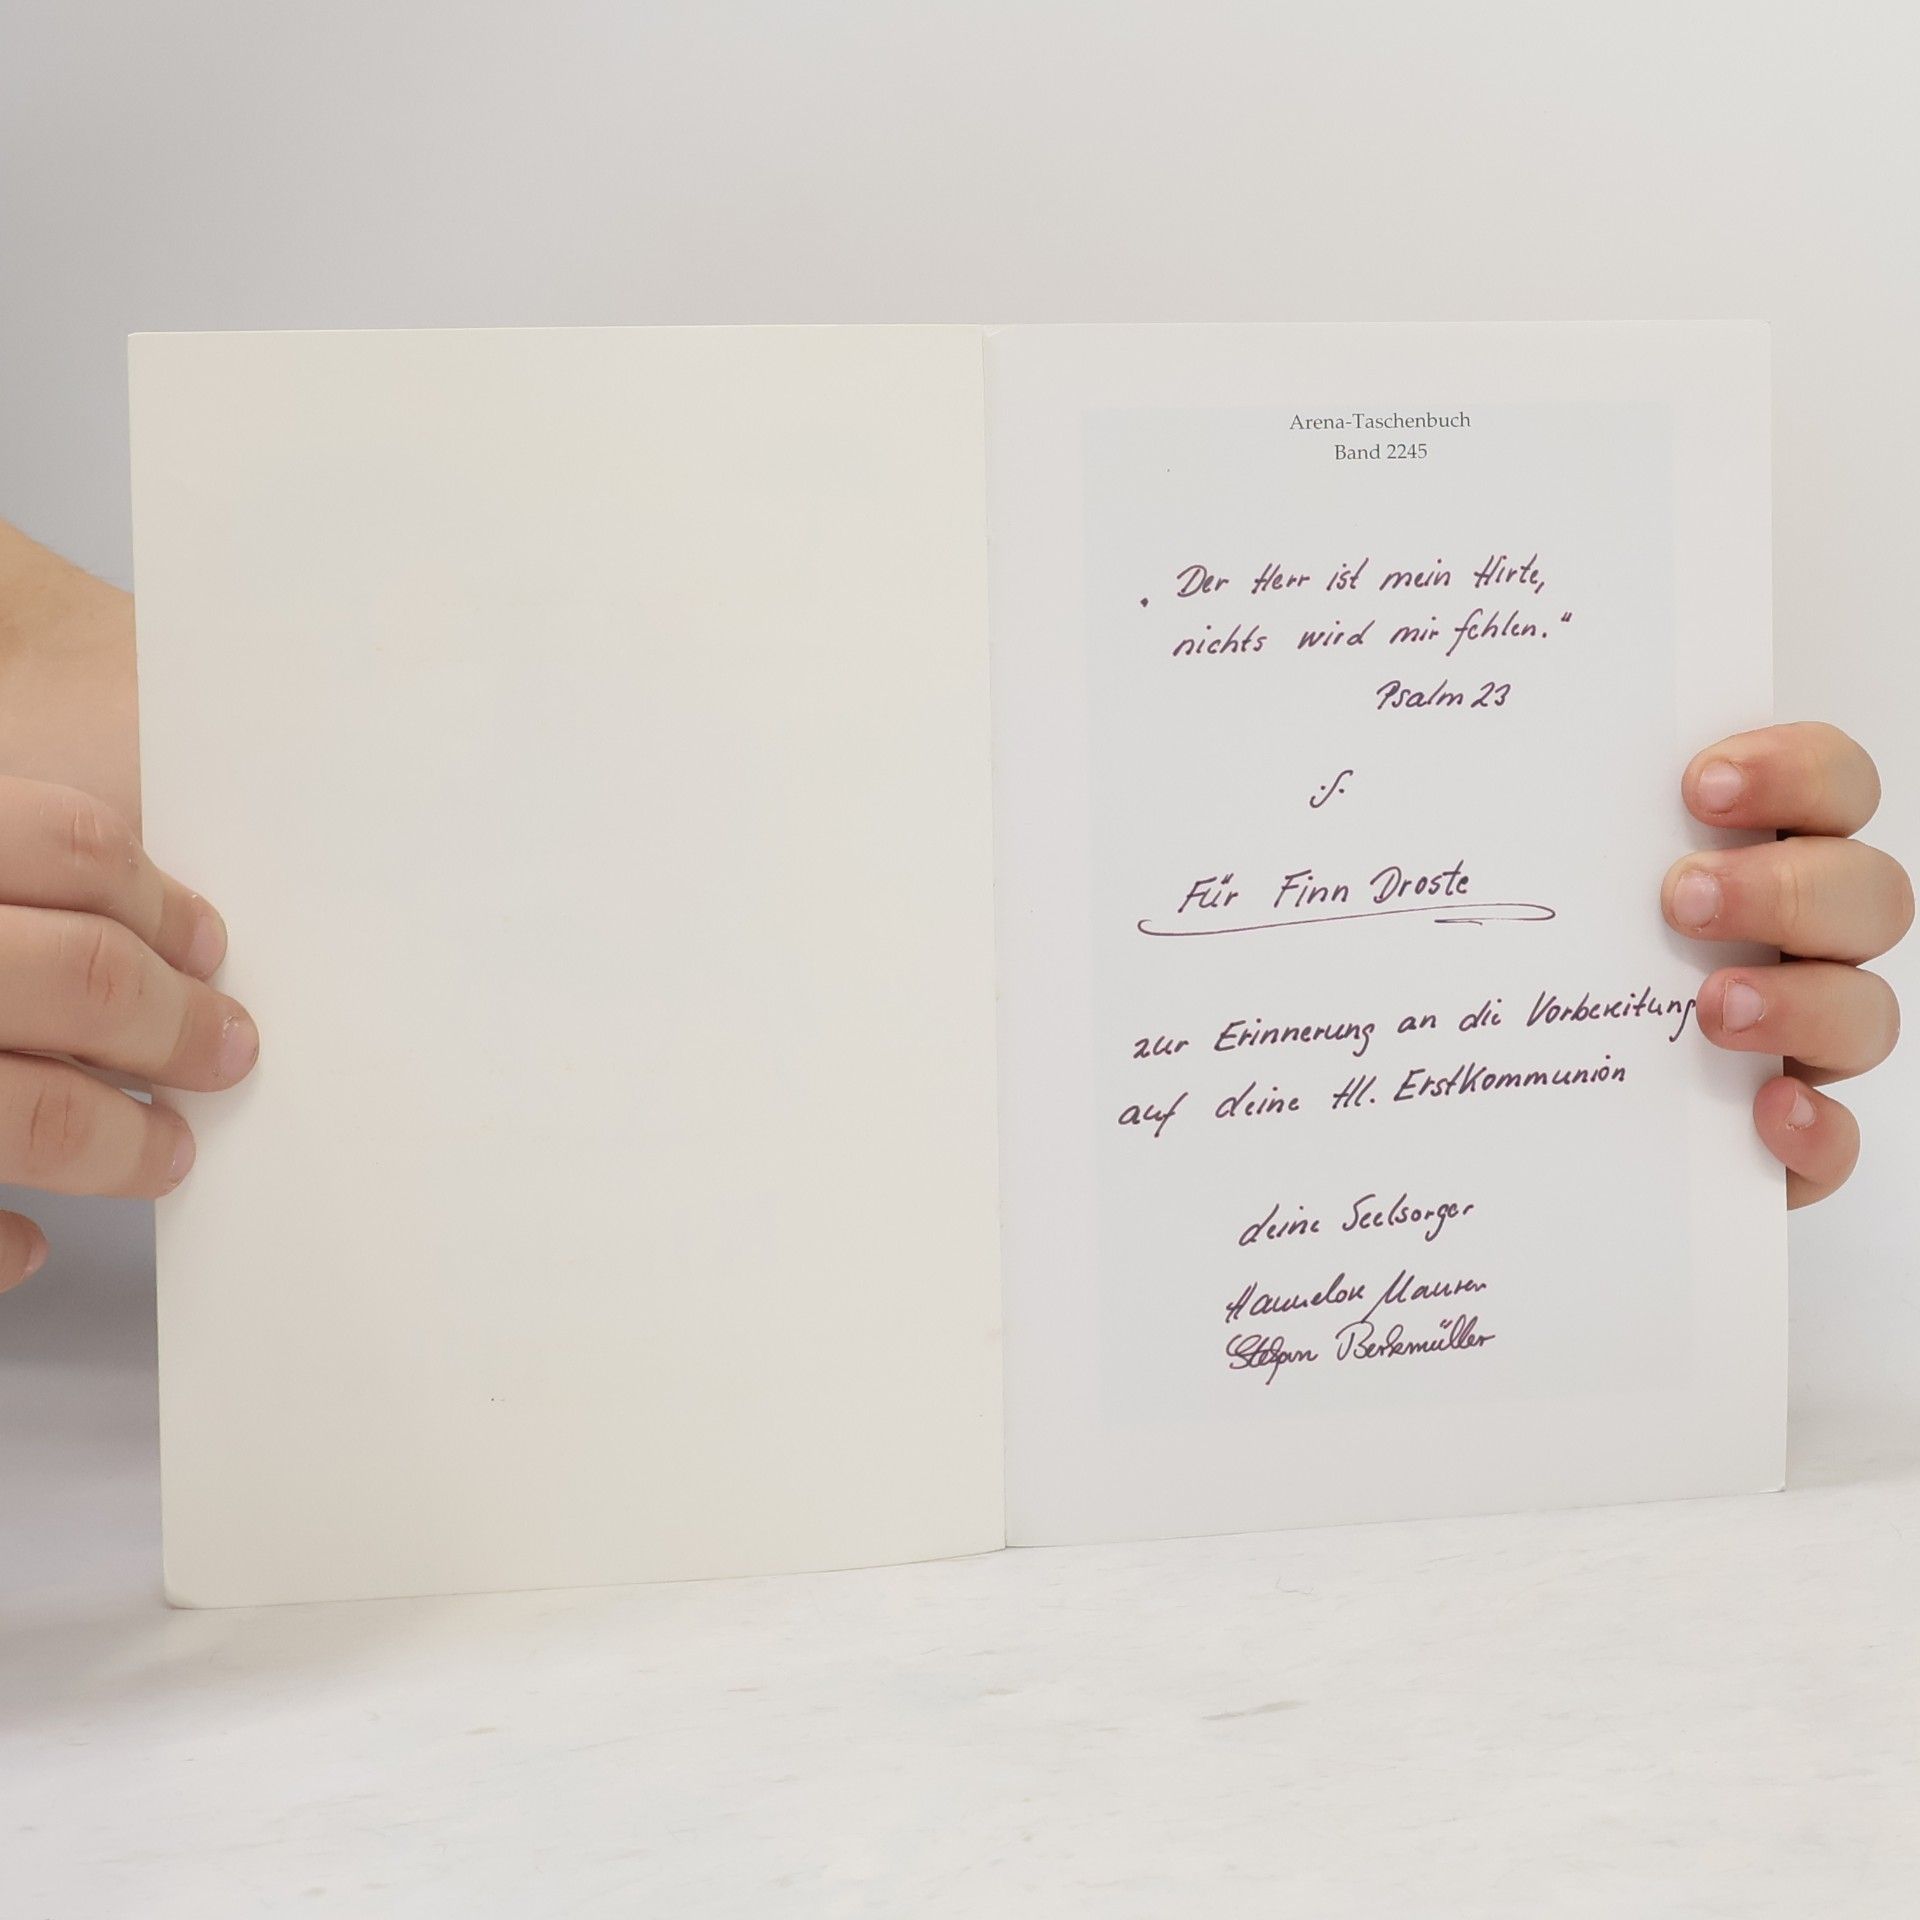 Arena-Taschenbuch
Band 2245
„Der Herr ist mein Hirte,
nichts wird mir fehlen.“
Psalm 23
Für Finn Droste
zur Erinnerung an die Vorbereitung
auf deine Hl. Erstkommunion
deine Seelsorger
Hannelore Maurer
Stefan Berkmüller